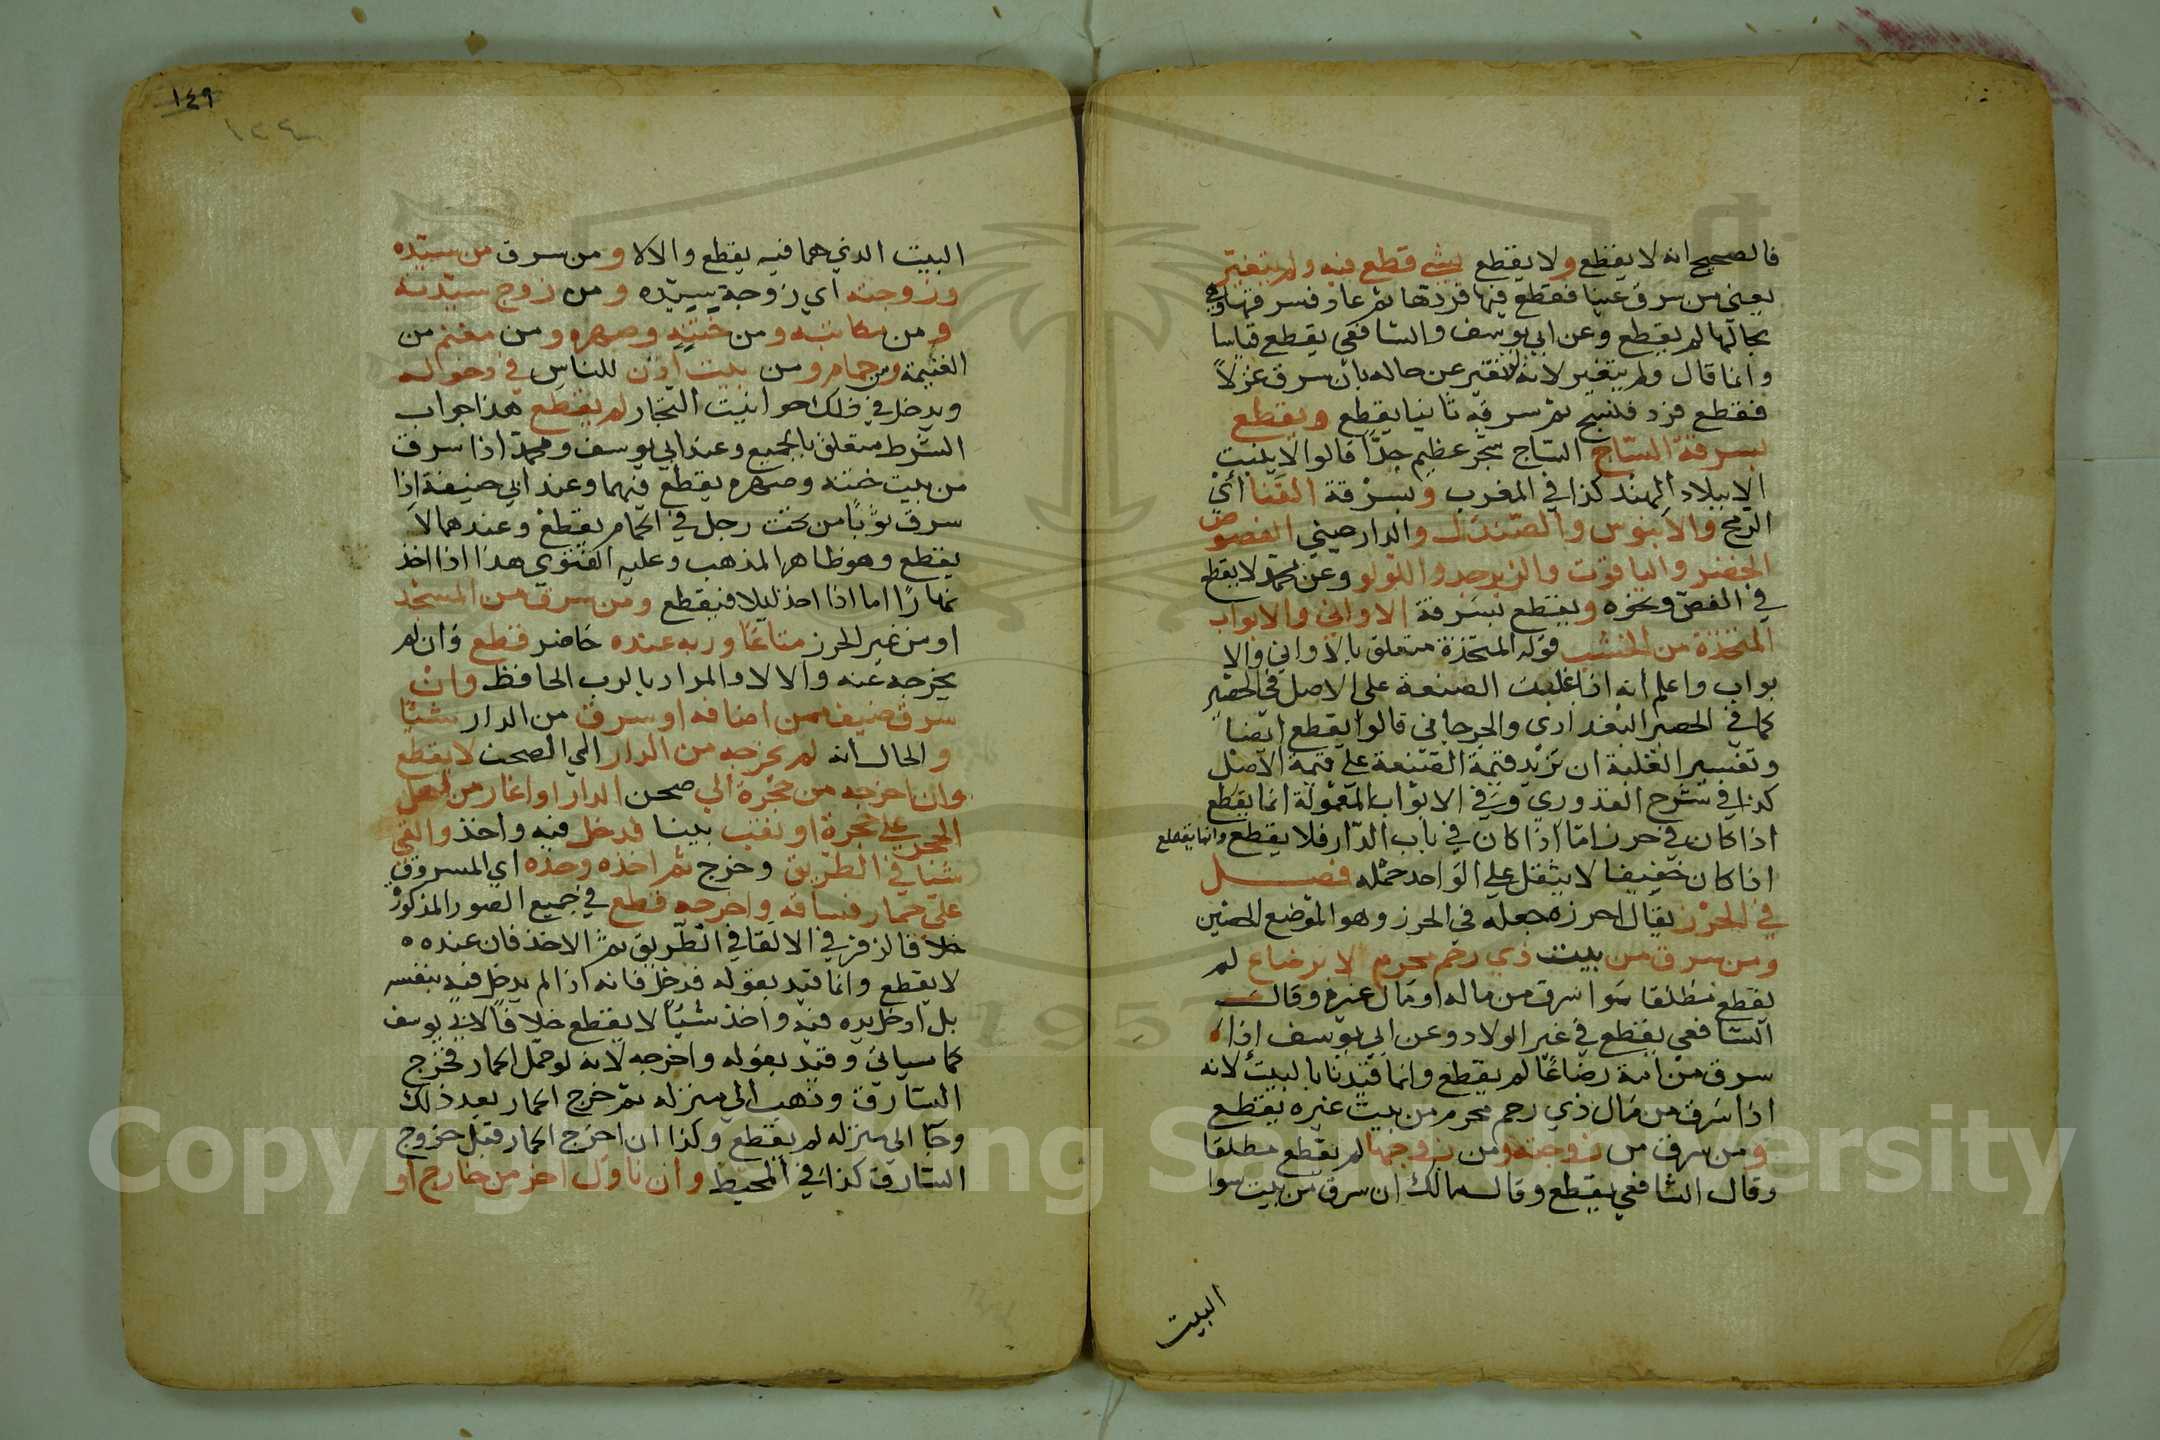 فالصحيح انه لا يقطع ولا يقطع بشئ قطع فيه ولم يتغير
يعني من سرق عينا فقطع فيها فردها ثم عاد فسرقها وهي
بحالها لم يقطع وعن ابي يوسف والشافعي يقطع قياسا
وانما قال ولم يتغير لانه لو تغير عن حاله بان سرق غزلاً
فقطع فرد فنسج ثم سرقه ثانيا يقطع ويقطع
بسرقة السّاج الساج شجر عظيم جدّا قالوا لا ينبت
الا ببلاد الهند كذا في المغرب وبسرقة القنا أيْ
الرمح والابنوس والصندل والدارصيني الفصوص
الخضر والياقوت والزبرجد واللولو وعن محمد لا يقطع
في الفصّ ونحوه ويقطع بسرقة الاواني والابواب
المتخذة من الخشب قوله المتخذة متعلق بالاواني والا
بواب واعلم أنه اذا غلبت الصنعة على الاصل في الحصير
كما في الحصير البغدادي والجرجاني قالوا يقطع ايضا
وتفسير الغلبة ان تزيد قيمة الصنعة على قيمة الاصل
كذا في شرح القدوري وفي الابواب المعمولة انما يقطع
اذا كان في حرز امّا اذا كان في باب الدّار فلا يقطع وانما يقطع
اذا كان خفيفا لا يثقل على الواحد حمله فصل
في الحرز يقال احرزه جعله في الحرز وهو الموضع الحصين
ومن سرق من بيت ذي رحم محرم لا برضاع لم
يقطع مطلقا سوا سرق من ماله او مال غيره وقال
الشافعي يقطع في غير الولاد وعن ابي يوسف إذا
سرق من امه رضاعًا لم يقطع وانما قيدنا بالبيت لانه
اذا سرق من مال ذي رحم محرم من بيت غيره يقطع
ومن سرق من زوجته ومن زوجها لم يقطع مطلقا
وقال الشافعي يقطع وقال مالك ان سرق من بيت سوا
البيت
١٤٩
البيت الذي هما فيه يقطع والا لا ومن سرق من سيّده
وزوجته اي زوجة سيّده ومن زوج سيّدته
ومن مكاتبه ومن ختنه وصهره ومن مغنم من
الغنيمة ومن حمام ومن بيت اذن للناس في دخوله
ويدخل في ذلك حوانيت التجار لم يقطع هذا جواب
الشرط متعلق بالجميع وعند ابي يوسف ومحمد اذا سرق
من بيت ختنه وصهره يقطع فيهما وعند ابي حنيفة اذا
سرق ثوبًا من تحت رجل في الحمام يقطع وعندهما لا
يقطع وهو ظاهر المذهب وعليه الفتوي هذا اذا اخذ
نهارًا اما اذا اخذ ليلا فيقطع ومن سرق من المسجد
او من غير الحرز متاعًا وربه عنده حاضر قطع وان لم
يخرجه عنه والا لا والمراد بالرب الحافظ وانْ
سرق ضيف ممن اضافه او سرق من الدار شيئًا
والحال انه لم يخرجه من الدار الي الصحن لا يقطع
وان اخرجه من حجرة الي صحن الدار او اغار من اهل
الحجر على حجرة او نقب بيتا فدخل فيه واخذ والقي
شيا في الطريق وخرج ثم اخذه وحده اي المسروق
على حمار فساقه واخرجه قطع في جميع الصور المذكورة
خلافا لزفر في الالقا في الطّريق ثم الاخذ فان عنده
لا يقطع وانما قيد بقوله فدخل فانه اذا لم يدخل فيه بنفسه
بل ادخل يده فيه واخذ شيئا لا يقطع خلافا لابي يوسف
كما سياتي وقيد بقوله واخرجه لانه لو حمل الحمار فخرج
السّارق وذهب الي منزله ثم خرج الحمار بعد ذلك
وجا الي منزله لم يقطع وكذا ان اخرج الحمار قبل خروج
السّارق كذا في المحيط وان ناول اخر من خارج او
Copyright © King Saud University
1957